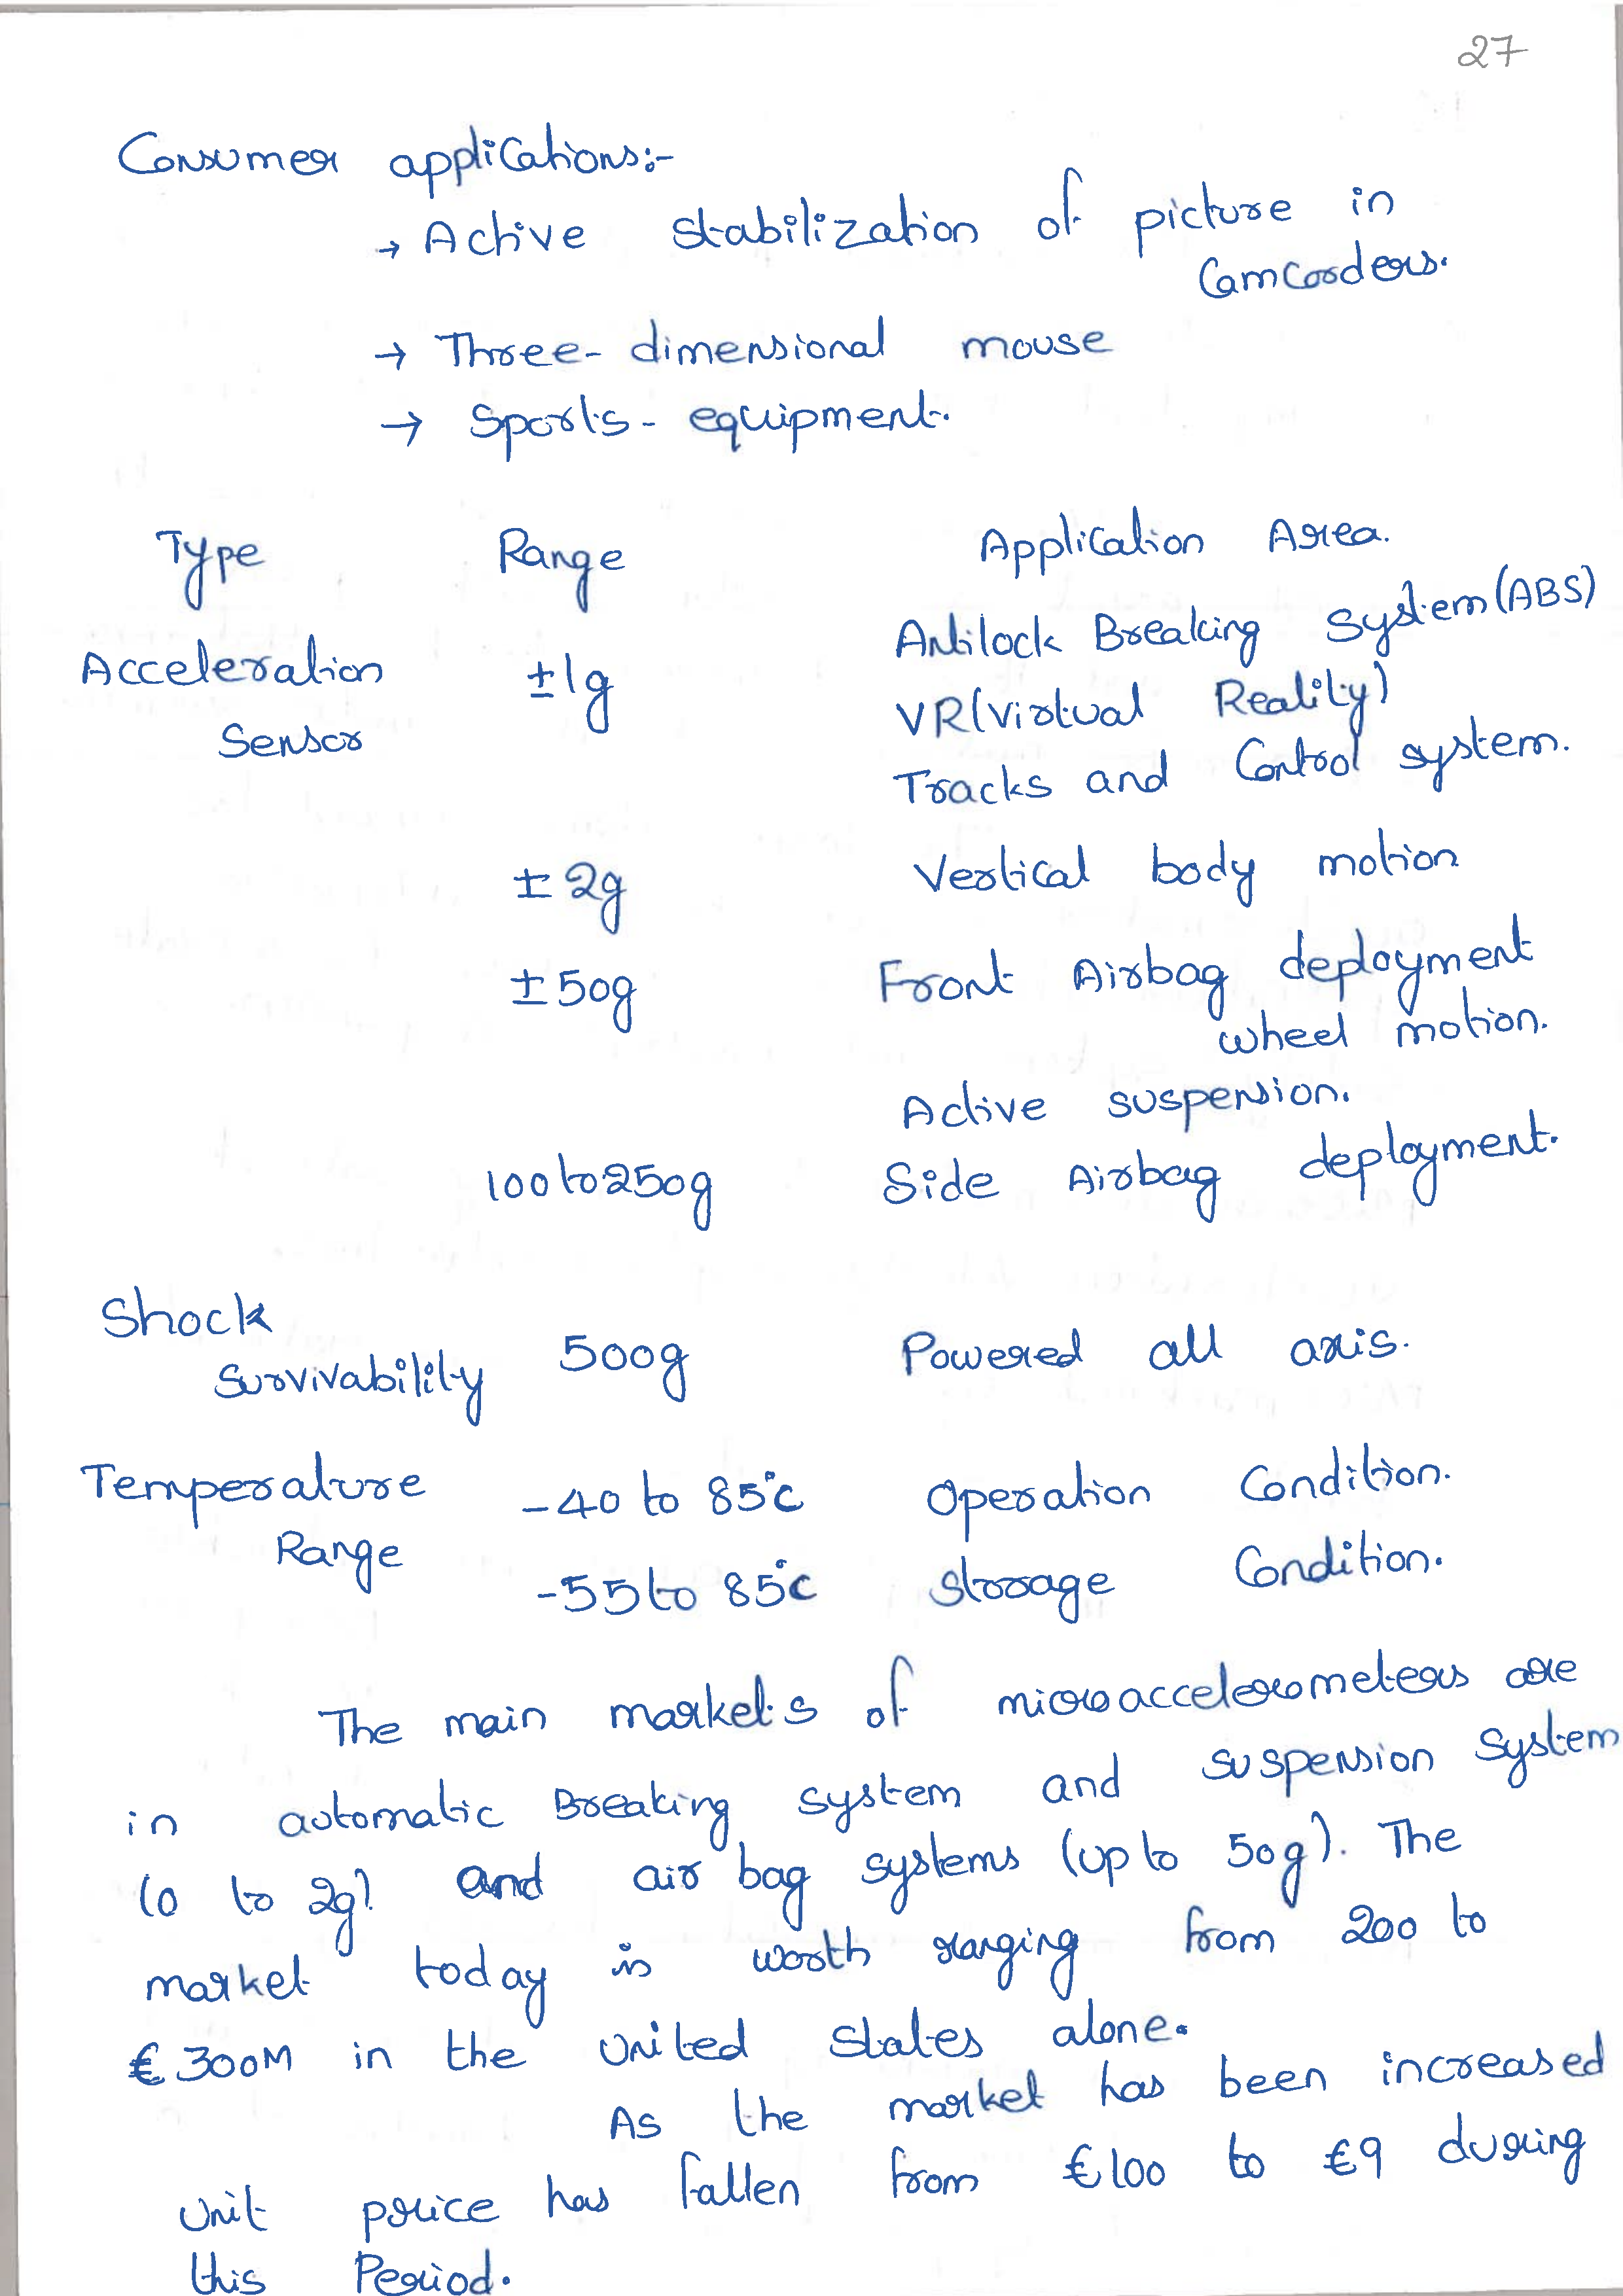 27
Consumer applications:-
→ Active stabilization of picture in
Camcorders.
→ Three-dimensional mouse
→ Sports-equipment.
Type Range Application Area.
Acceleration ±1g Antilock Breaking System (ABS)
Sensor VR(Virtual Reality)
Tracks and Control system.
±2g Vertical body motion
±50g Front Airbag deployment
wheel motion.
Active suspension.
100 to 250g Side Airbag deployment.
Shock
Survivability 500g Powered all axis.
Temperature -40 to 85°c Operation Condition.
Range
-55 to 85°c Storage Condition.
The main markets of microaccelerometers are
in automatic Breaking system and suspension system
(0 to 2g) and air bag systems (up to 50g). The
market today is worth ranging from 200 to
€300M in the United States alone.
As the market has been increased
Unit price has fallen from €100 to €9 during
this Period.